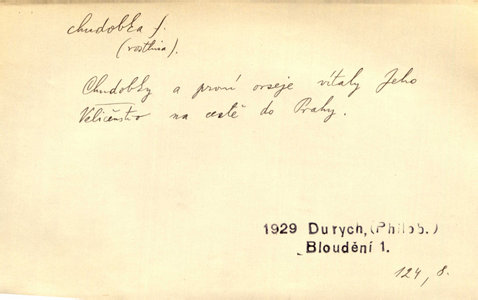 chudobka f.
(rostlina).
Chudobky a první orseje vítaly Jeho
Veličenstvo na cestě do Prahy.
1929 Durych, (Philob.)
Bloudění 1.
124, 8.